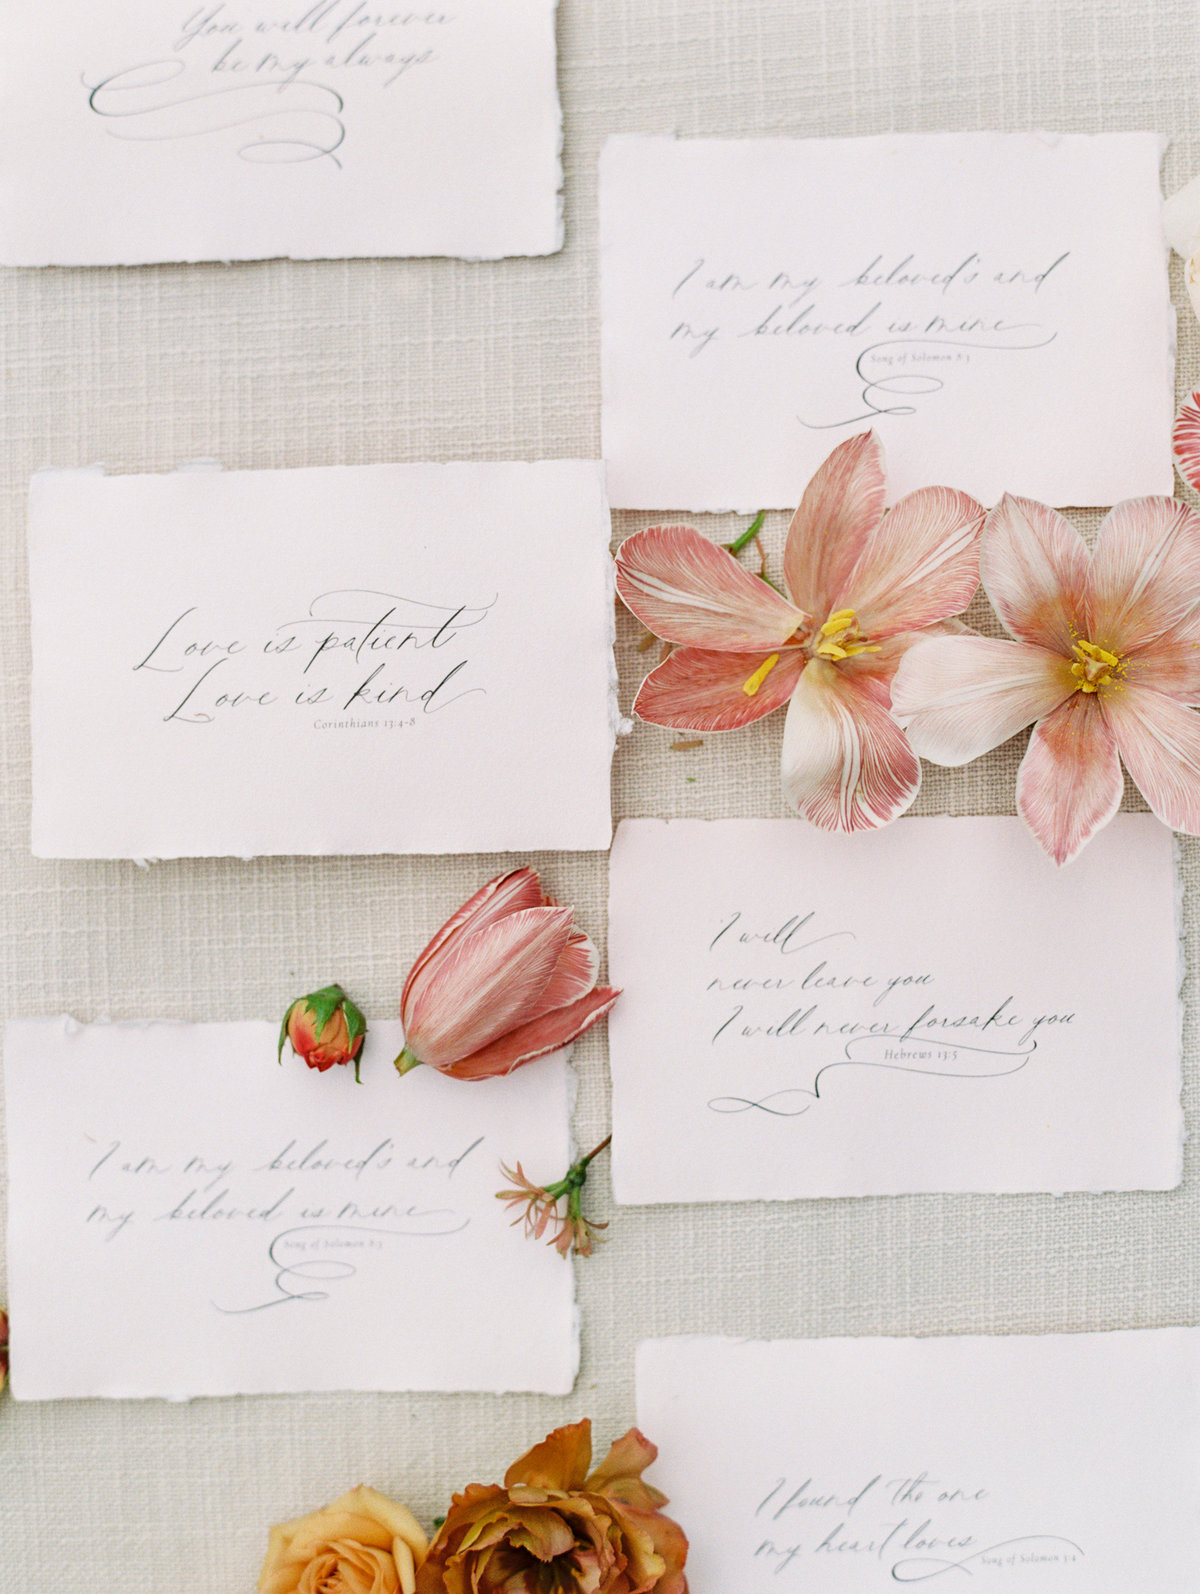 You will forever
be my always
I am my beloved's and
my beloved is mine
Song of Solomon 8:3
Love is patient
Love is kind
Corinthians 13:4-8
I will
never leave you
I will never forsake you
Hebrews 13:5
I am my beloved's and
my beloved is mine
Song of Solomon 8:3
I found the one
my heart loves
Song of Solomon 3:4